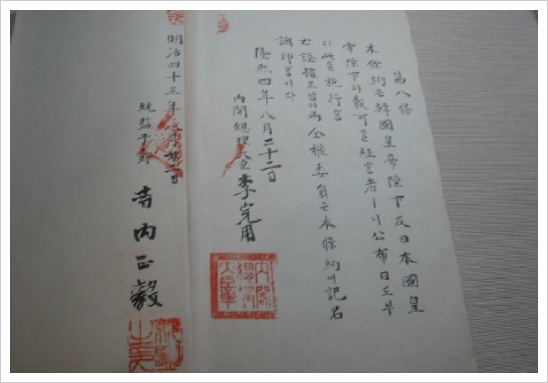 第八條
本條約은韓國皇帝陛下及日本國皇
帝陛下의裁可를經한者ㅣ니公布日로브
터此를施行홈
右證據로삼아兩全權委員은本條約에記名
調印홈이라
隆熙四年八月二十二日
內閣總理大臣李完用
內閣總理大臣章
明治四十三年八月二十二日
統監子爵寺內正毅